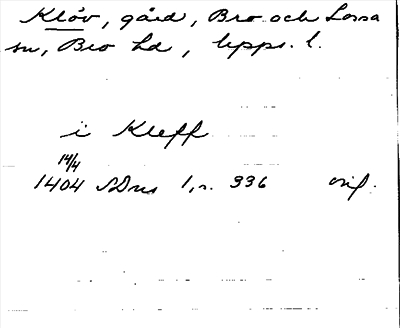 Klöv, gård, Bro och Lossa
sn, Bro hd, Upps. l.
i Kleff
14/4
1404 SDns 1, n. 336 orig.